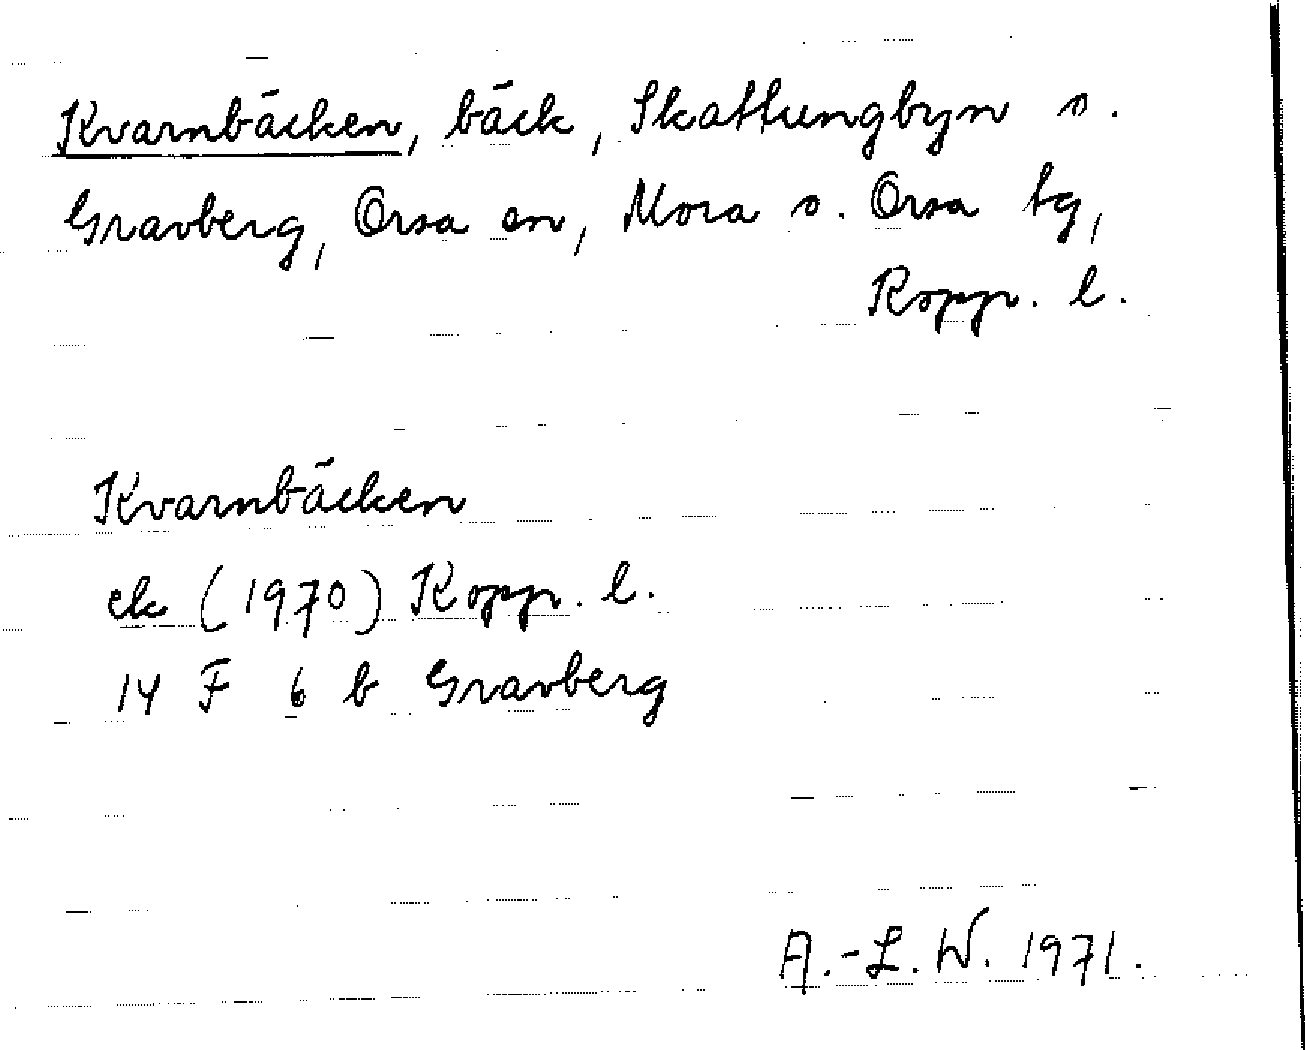 Kvarnbäcken, bäck, Skattungbyn s.
Gravberg, Orsa sn, Mora o. Orsa tg,
Kopp. l.
Kvarnbäcken
ek (1970) Kopp. l.
14 F 6 b Gravberg
A.-L. W. 1971.